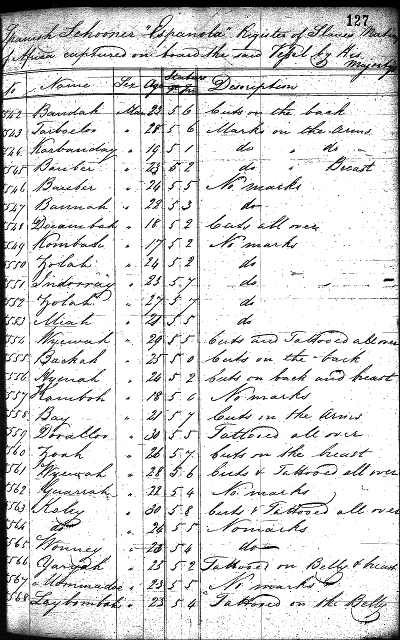 127
Spanish Schooner "Espanola" Register of Slaves Natives
of Africa captured on board the said Vessel by His
Majesty's
No Name Sex Age Stature Ft In Description
542 Bandah Man 23 5 6 Cuts on the back
543 Tarbactoo " 28 5 6 Marks on the arms
544 Karbanday " 19 5 1 do " do
545 Bariber " 23 5 2 do " Breast
546 Bariber " 24 5 5 No marks
547 Bannah " 22 5 3 do
548 " 18 5 2 Cuts all over
549 Kombah " 17 5 2 No marks
550 Zolah " 24 5 2 do
551 " 23 5 7 do
552 Zolah " 27 5 7 do
553 Miah " 21 5 5 do
554 Wyewah " 29 5 5 Cuts and Tattooed all over
555 Backah " 25 5 0 Cuts on the back
556 Nyenah " 24 5 2 Cuts on back and breast
557 Hamboh " 18 5 6 No marks
558 Bay " 21 5 7 Cuts on the Arms
559 " 30 5 5 Tattooed all over
560 Zoah " 26 5 7 Cuts on the breast
561 Wyewah " 28 5 6 Cuts & Tattooed all over
562 " 22 5 4 No marks
563 Kaley " 30 5 8 Cuts & Tattooed all over
564 do " 26 5 5 No marks
565 Wonney " 20 5 4 do
566 " 25 5 2 Tattooed on Belly & breast
567 " 23 5 5 No marks
568 Laybombah " 23 5 4 Tattooed on the Belly